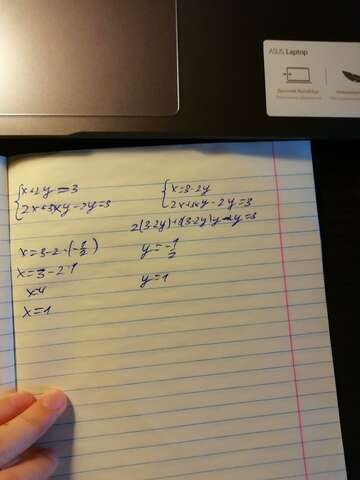 ASUS Laptop
{x+2y=3
{2x+3xy-2y=3
{x=3-2y
{2x+3xy-2y=3
2(3-2y)+3(3-2y)y-2y=3
x=3-2·(-1/2)
y=-1/2
x=3-2·1
x=4
y=1
x=1